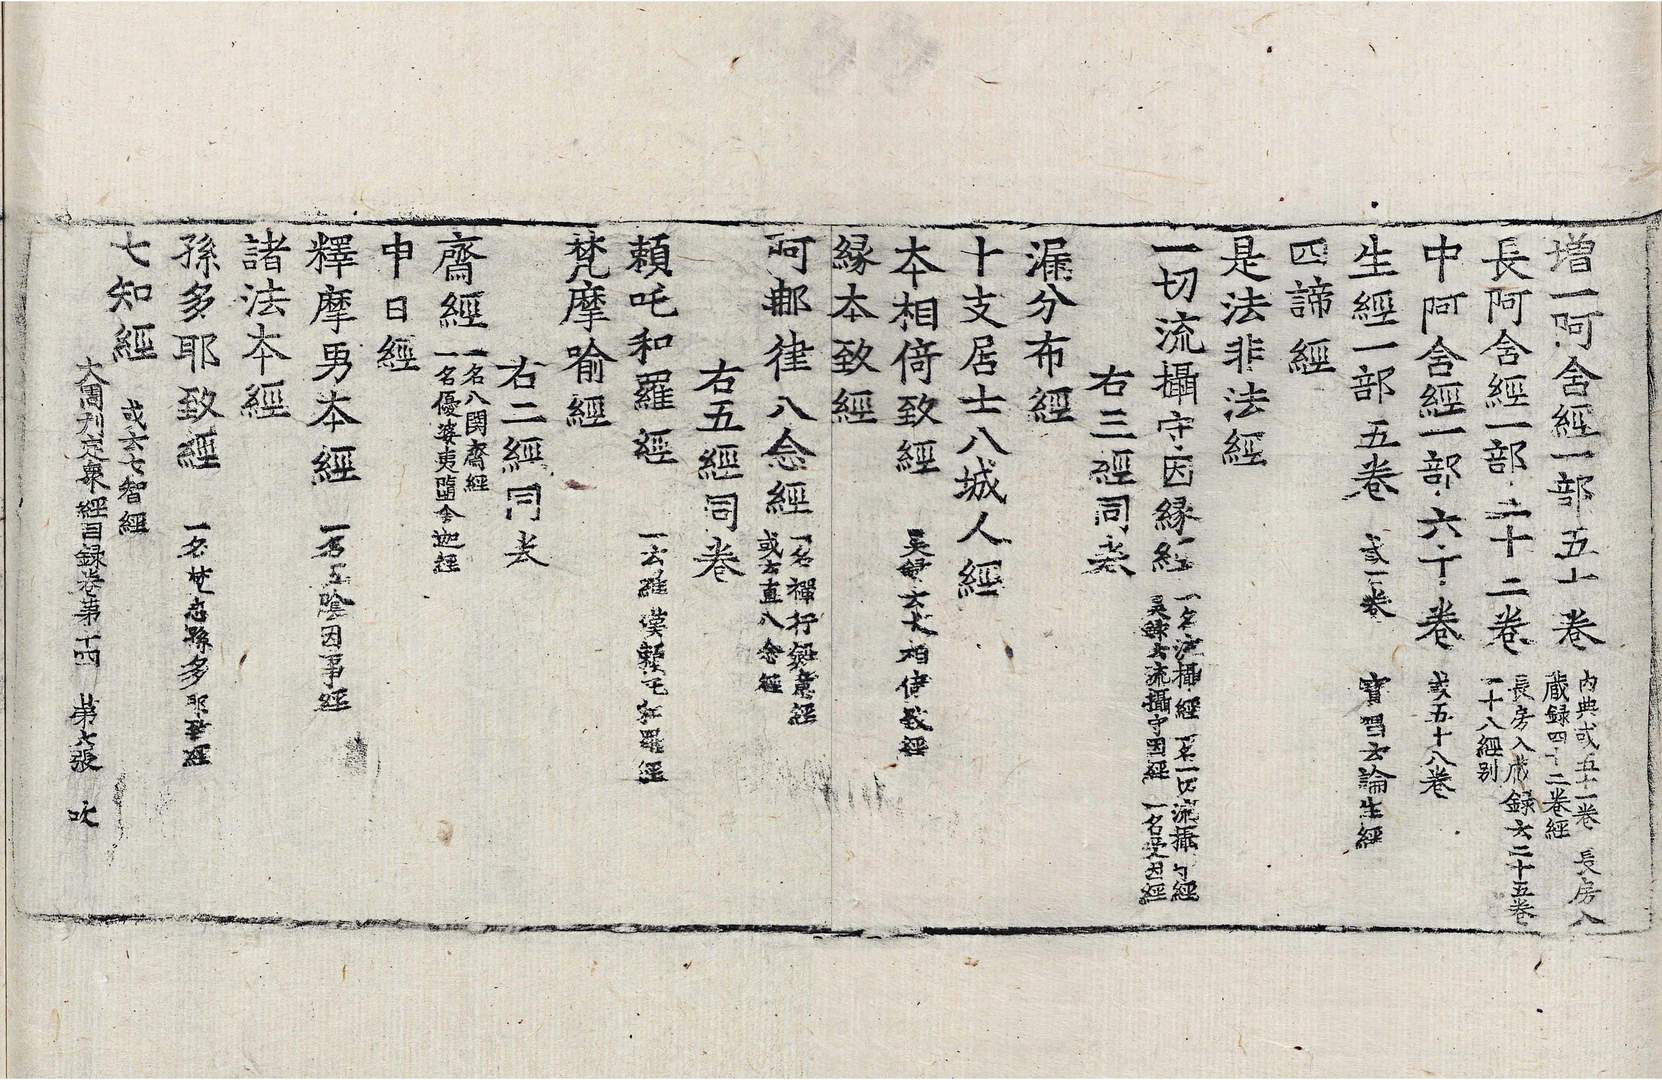 增一阿含經一部五十卷 內典或五十一卷 長房入
藏録四十二卷經
長阿含經一部二十二卷 長房入藏録云二十五卷
一十八經别
中阿含經一部六十卷 或五十八卷
生經一部五卷 或一卷 寶唱云論生經
四諦經
是法非法經
一切流攝守因緣經 一名流攝經 一名一切流攝守經
吳録云流攝守因經 一名受因經
右三經同卷
漏分布經
十支居士八城人經
本相倚致經 吳録云大相倚致經
緣本致經
阿那律八念經 一名禪行斂意經
或云直八念經
右五經同卷
頼吒和羅經 一云羅漢頼吒和羅經
梵摩喻經
右二經同卷
齋經 一名八關齋經
一名優婆夷墮舍迦經
申日經
釋摩男本經 一名五陰因事經
諸法本經
孫多耶致經 一名梵志孫多耶致經
七知經 或云七智經
大周刊定衆經目録卷第十四 第六張 吹